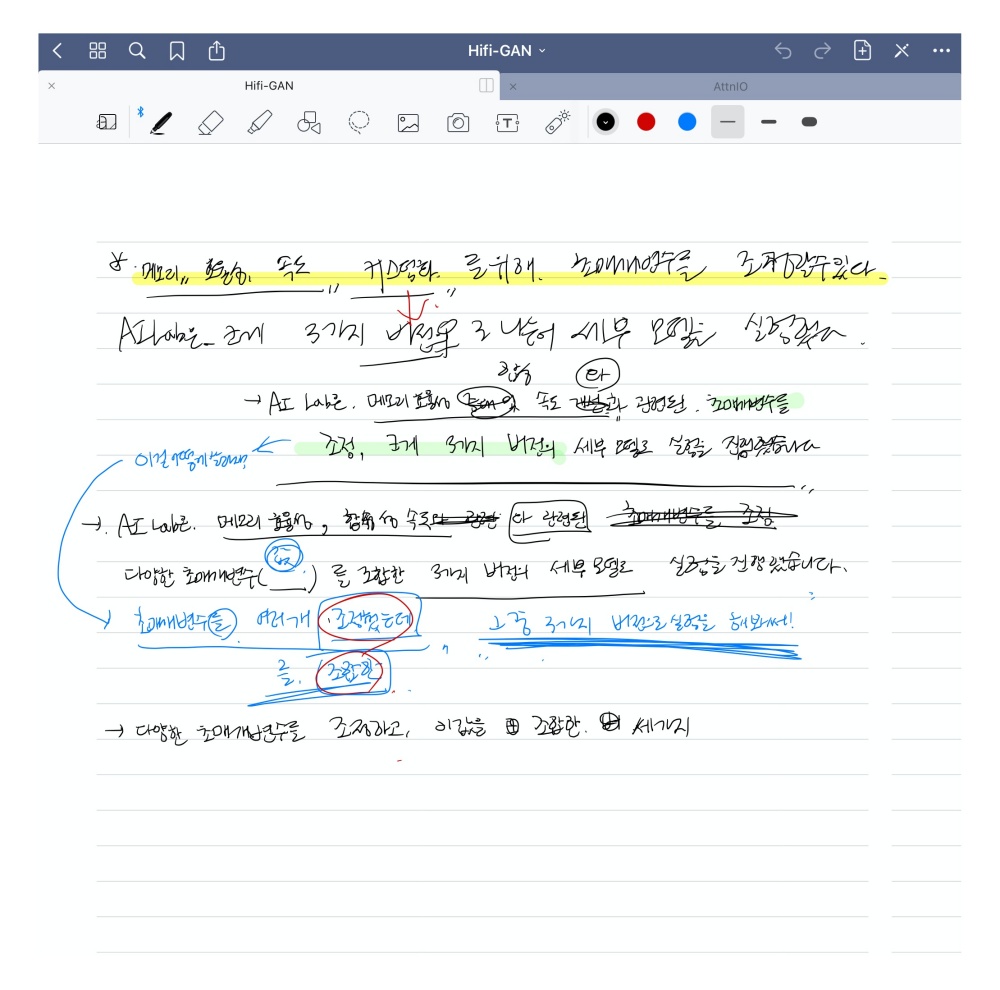 Hifi-GAN
Hifi-GAN
AttnIO
메모리, 효율성, 속도 커스텀화를 위해. 초매개변수를 조정할수있다.
AI Lab은 크게 3가지 버전으로 나누어 세부 모델을 실험했다.
합성
와
→ AI Lab은. 메모리 효율성 속도 관련된. 초매개변수를
조정, 크게 3가지 버전의 세부 모델로 실험을 진행했습니다
→ AI Lab은. 메모리 효율성, 합성 속도와 관련된 초매개변수를 조정
값
다양한 초매개변수( )를 조합한 3가지 버전의 세부 모델로 실험을 진행했습니다.
초매개변수를 여러개 조정했는데 그 중 3가지 버전으로 실험을 해봤어!
를. 조합한
→ 다양한 초매개변수를 조정하고, 이 값을 조합한. 세가지